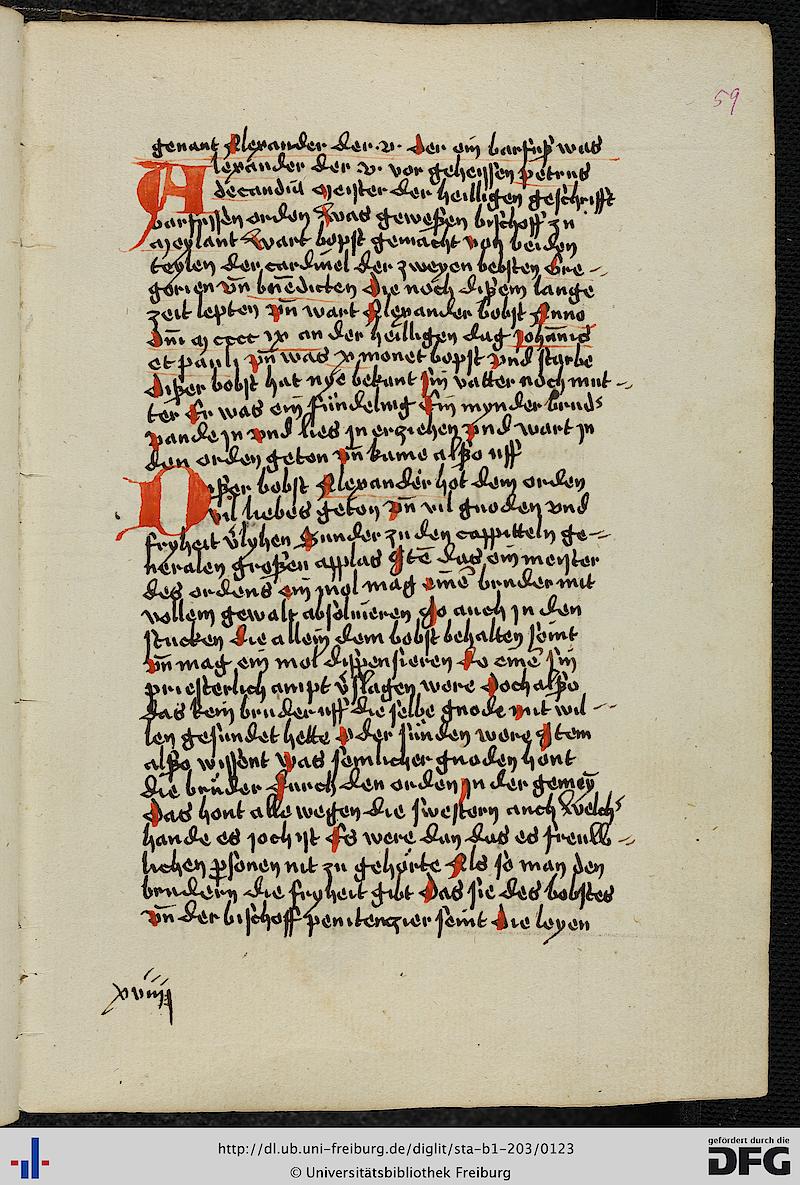 59
genant Alexander der .v. der ein barfuß was
Alexander der .v. vor geheissen petrus
decandia meister der heilligen geschrifft
barfussen orden Was geweßen bischoff zu
Meylant Wart bopst gemacht von beiden
teylen der cardinel der zweyen bebsten Gre-
gorien vn̄ bn̄edicten Die noch dißem lange
zeit lepten vn̄ wart Alexander bobst Anno
Dn̄i M cccc ix an der heilligen dag Johannis
et pauli vn̄ was x monet bopst vnd starbe
Dißer bobst hat nye bekant sin vatter noch mut-
ter Er was ein fündeling Ein mynder bruder
vande in vnd lies in erziehen vnd wart in
den orden geton vn̄ kame alßo uff
Dißer bobst Alexander hot dem orden
vil liebes geton vn̄ vil gnoden vnd
fryheit v̄lyhen Sunder zu den cappitteln ge-
neralen großen applas Itē das ein meister
des ordens ein mol mag einē bruder mit
vollem gewalt absoluieren Jo auch in den
stucken Die allein dem bobst behalten seint
vn̄ mag ein mol dispensieren So einē sin
priesterlich ampt v̄slagen were Doch alßo
das kein bruder uff die selbe gnode mit wil-
len gesundet hette Oder sünden were Item
alßo wissent Was semlicher gnoden hont
die brüder Durch den orden in der gemeȳ
Das hont alle wegen die swestern auch Welch'
hande es joch ist Es were dan das es freulb-
lichen psonen nit zu gehörte Als so man den
brudern die fryheit gibt Das sie des bobstes
vn̄ der bischoff penitenzier seint Die leyen
xviiij
http://dl.ub.uni-freiburg.de/diglit/sta-b1-203/0123
© Universitätsbibliothek Freiburg
gefördert durch die
DFG